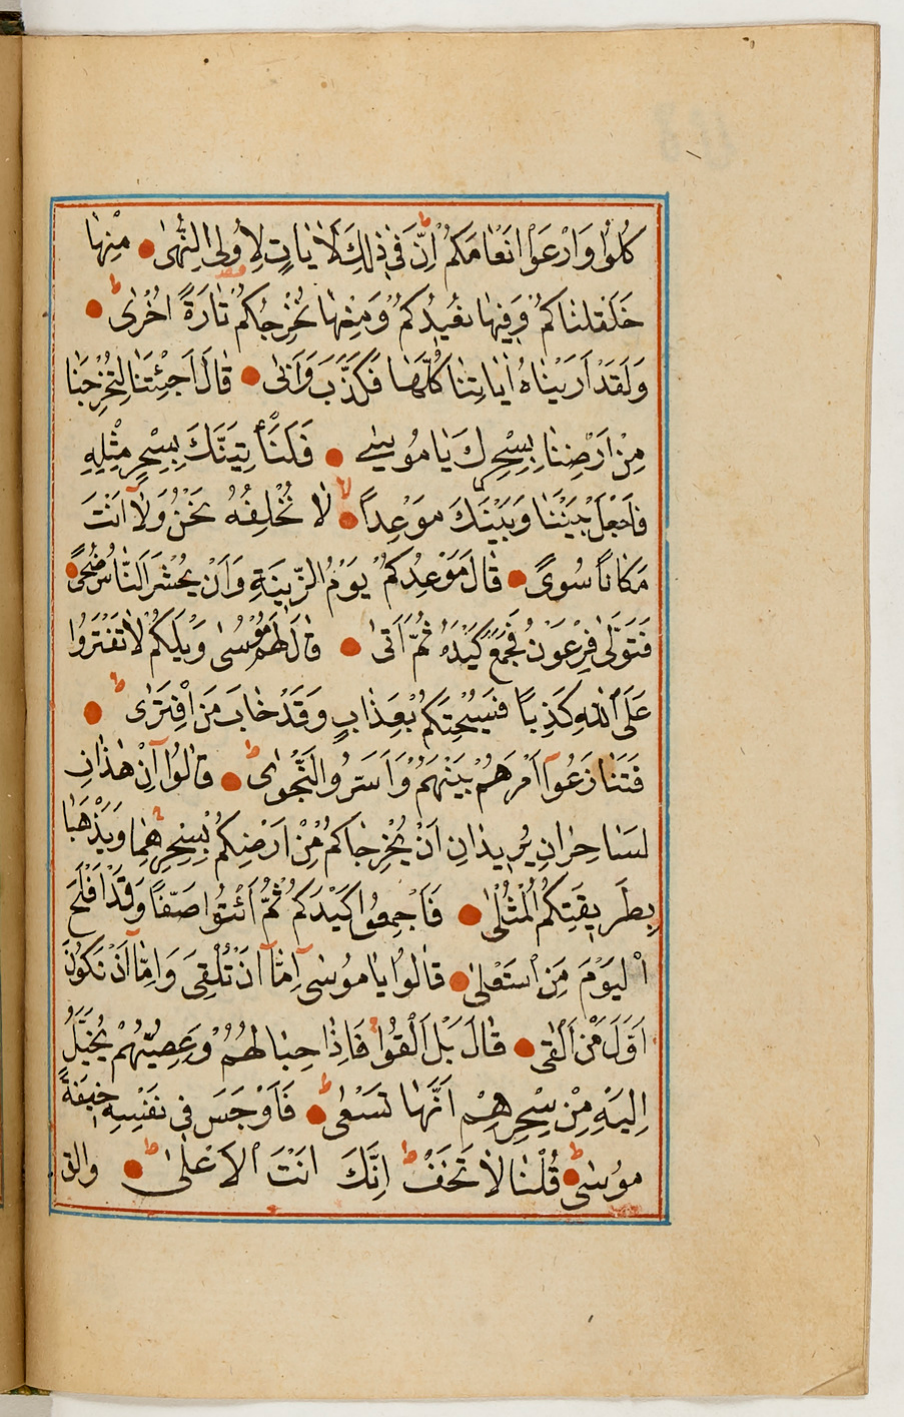 كُلُوا وَارْعَوْا اَنْعَامَكُمْ اِنَّ فِي ذٰلِكَ لَاٰيَاتٍ لِاُولِي النُّهٰى ● مِنْهَا
خَلَقْنَاكُمْ وَفِيهَا نُعِيدُكُمْ وَمِنْهَا نُخْرِجُكُمْ تَارَةً اُخْرٰى ●
وَلَقَدْ اَرَيْنَاهُ اٰيَاتِنَا كُلَّهَا فَكَذَّبَ وَاَبٰى ● قَالَ اَجِئْتَنَا لِتُخْرِجَنَا
مِنْ اَرْضِنَا بِسِحْرِكَ يَا مُوسٰى ● فَلَنَأْتِيَنَّكَ بِسِحْرٍ مِثْلِهِ
فَاجْعَلْ بَيْنَنَا وَبَيْنَكَ مَوْعِدًا ● لَا نُخْلِفُهُ نَحْنُ وَلَا اَنْتَ
مَكَانًا سُوًى ● قَالَ مَوْعِدُكُمْ يَوْمُ الزِّينَةِ وَاَنْ يُحْشَرَ النَّاسُ ضُحًى ●
فَتَوَلّٰى فِرْعَوْنُ فَجَمَعَ كَيْدَهُ ثُمَّ اَتٰى ● قَالَ لَهُمْ مُوسٰى وَيْلَكُمْ لَا تَفْتَرُوا
عَلَى اللّٰهِ كَذِبًا فَيُسْحِتَكُمْ بِعَذَابٍ وَقَدْ خَابَ مَنِ افْتَرٰى ●
فَتَنَازَعُوا اَمْرَهُمْ بَيْنَهُمْ وَاَسَرُّوا النَّجْوٰى ● قَالُوا اِنْ هٰذَانِ
لَسَاحِرَانِ يُرِيدَانِ اَنْ يُخْرِجَاكُمْ مِنْ اَرْضِكُمْ بِسِحْرِهِمَا وَيَذْهَبَا
بِطَرِيقَتِكُمُ الْمُثْلٰى ● فَاَجْمِعُوا كَيْدَكُمْ ثُمَّ ائْتُوا صَفًّا وَقَدْ اَفْلَحَ
الْيَوْمَ مَنِ اسْتَعْلٰى ● قَالُوا يَا مُوسٰى اِمَّا اَنْ تُلْقِيَ وَاِمَّا اَنْ نَكُونَ
اَوَّلَ مَنْ اَلْقٰى ● قَالَ بَلْ اَلْقُوا فَاِذَا حِبَالُهُمْ وَعِصِيُّهُمْ يُخَيَّلُ
اِلَيْهِ مِنْ سِحْرِهِمْ اَنَّهَا تَسْعٰى ● فَاَوْجَسَ فِي نَفْسِهِ خِيفَةً
مُوسٰى ● قُلْنَا لَا تَخَفْ اِنَّكَ اَنْتَ الْاَعْلٰى ● والق